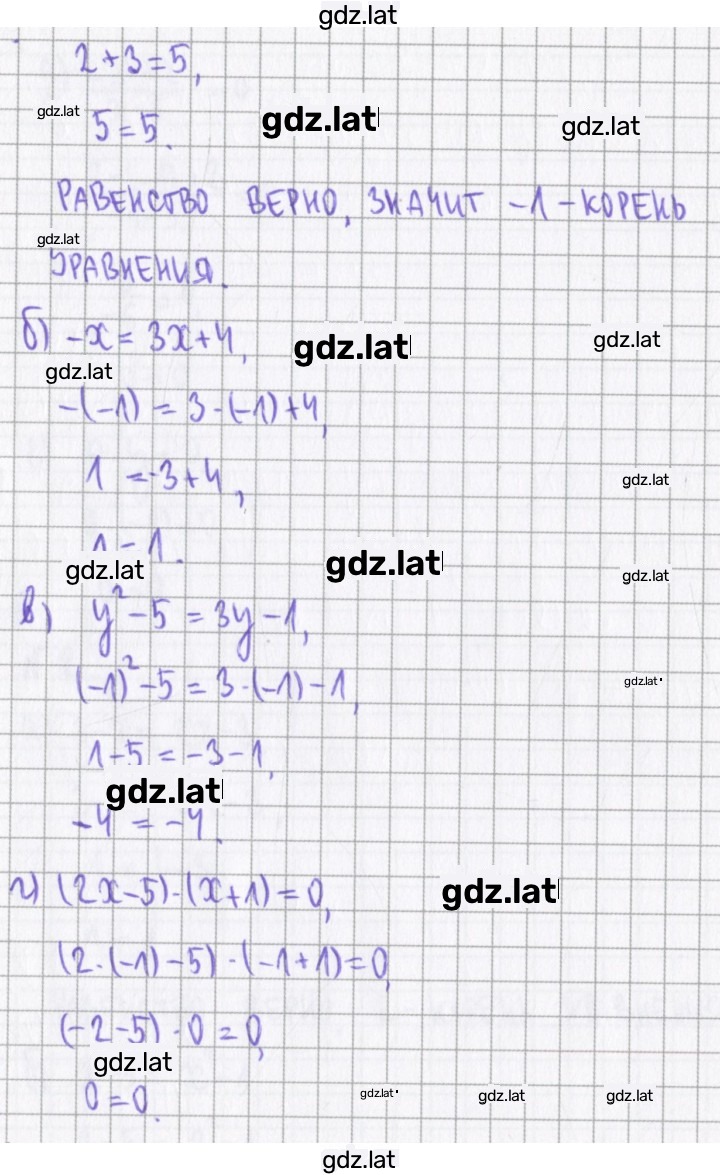 gdz.lat
2+3=5,
gdz.lat 5=5. gdz.lat gdz.lat
РАВЕНСТВО ВЕРНО, ЗНАЧИТ -1 - КОРЕНЬ
gdz.lat
УРАВНЕНИЯ.
б) -x = 3x+4, gdz.lat gdz.lat
gdz.lat
-(-1) = 3·(-1)+4,
1 = -3+4, gdz.lat
1 = 1.
gdz.lat gdz.lat gdz.lat
в) y²-5 = 3y-1,
(-1)²-5 = 3·(-1)-1, gdz.lat
1-5 = -3-1,
gdz.lat
-4 = -4.
г) (2x-5)·(x+1)=0, gdz.lat
(2·(-1)-5)·(-1+1)=0,
(-2-5)·0=0,
gdz.lat
0=0. gdz.lat gdz.lat gdz.lat
gdz.lat